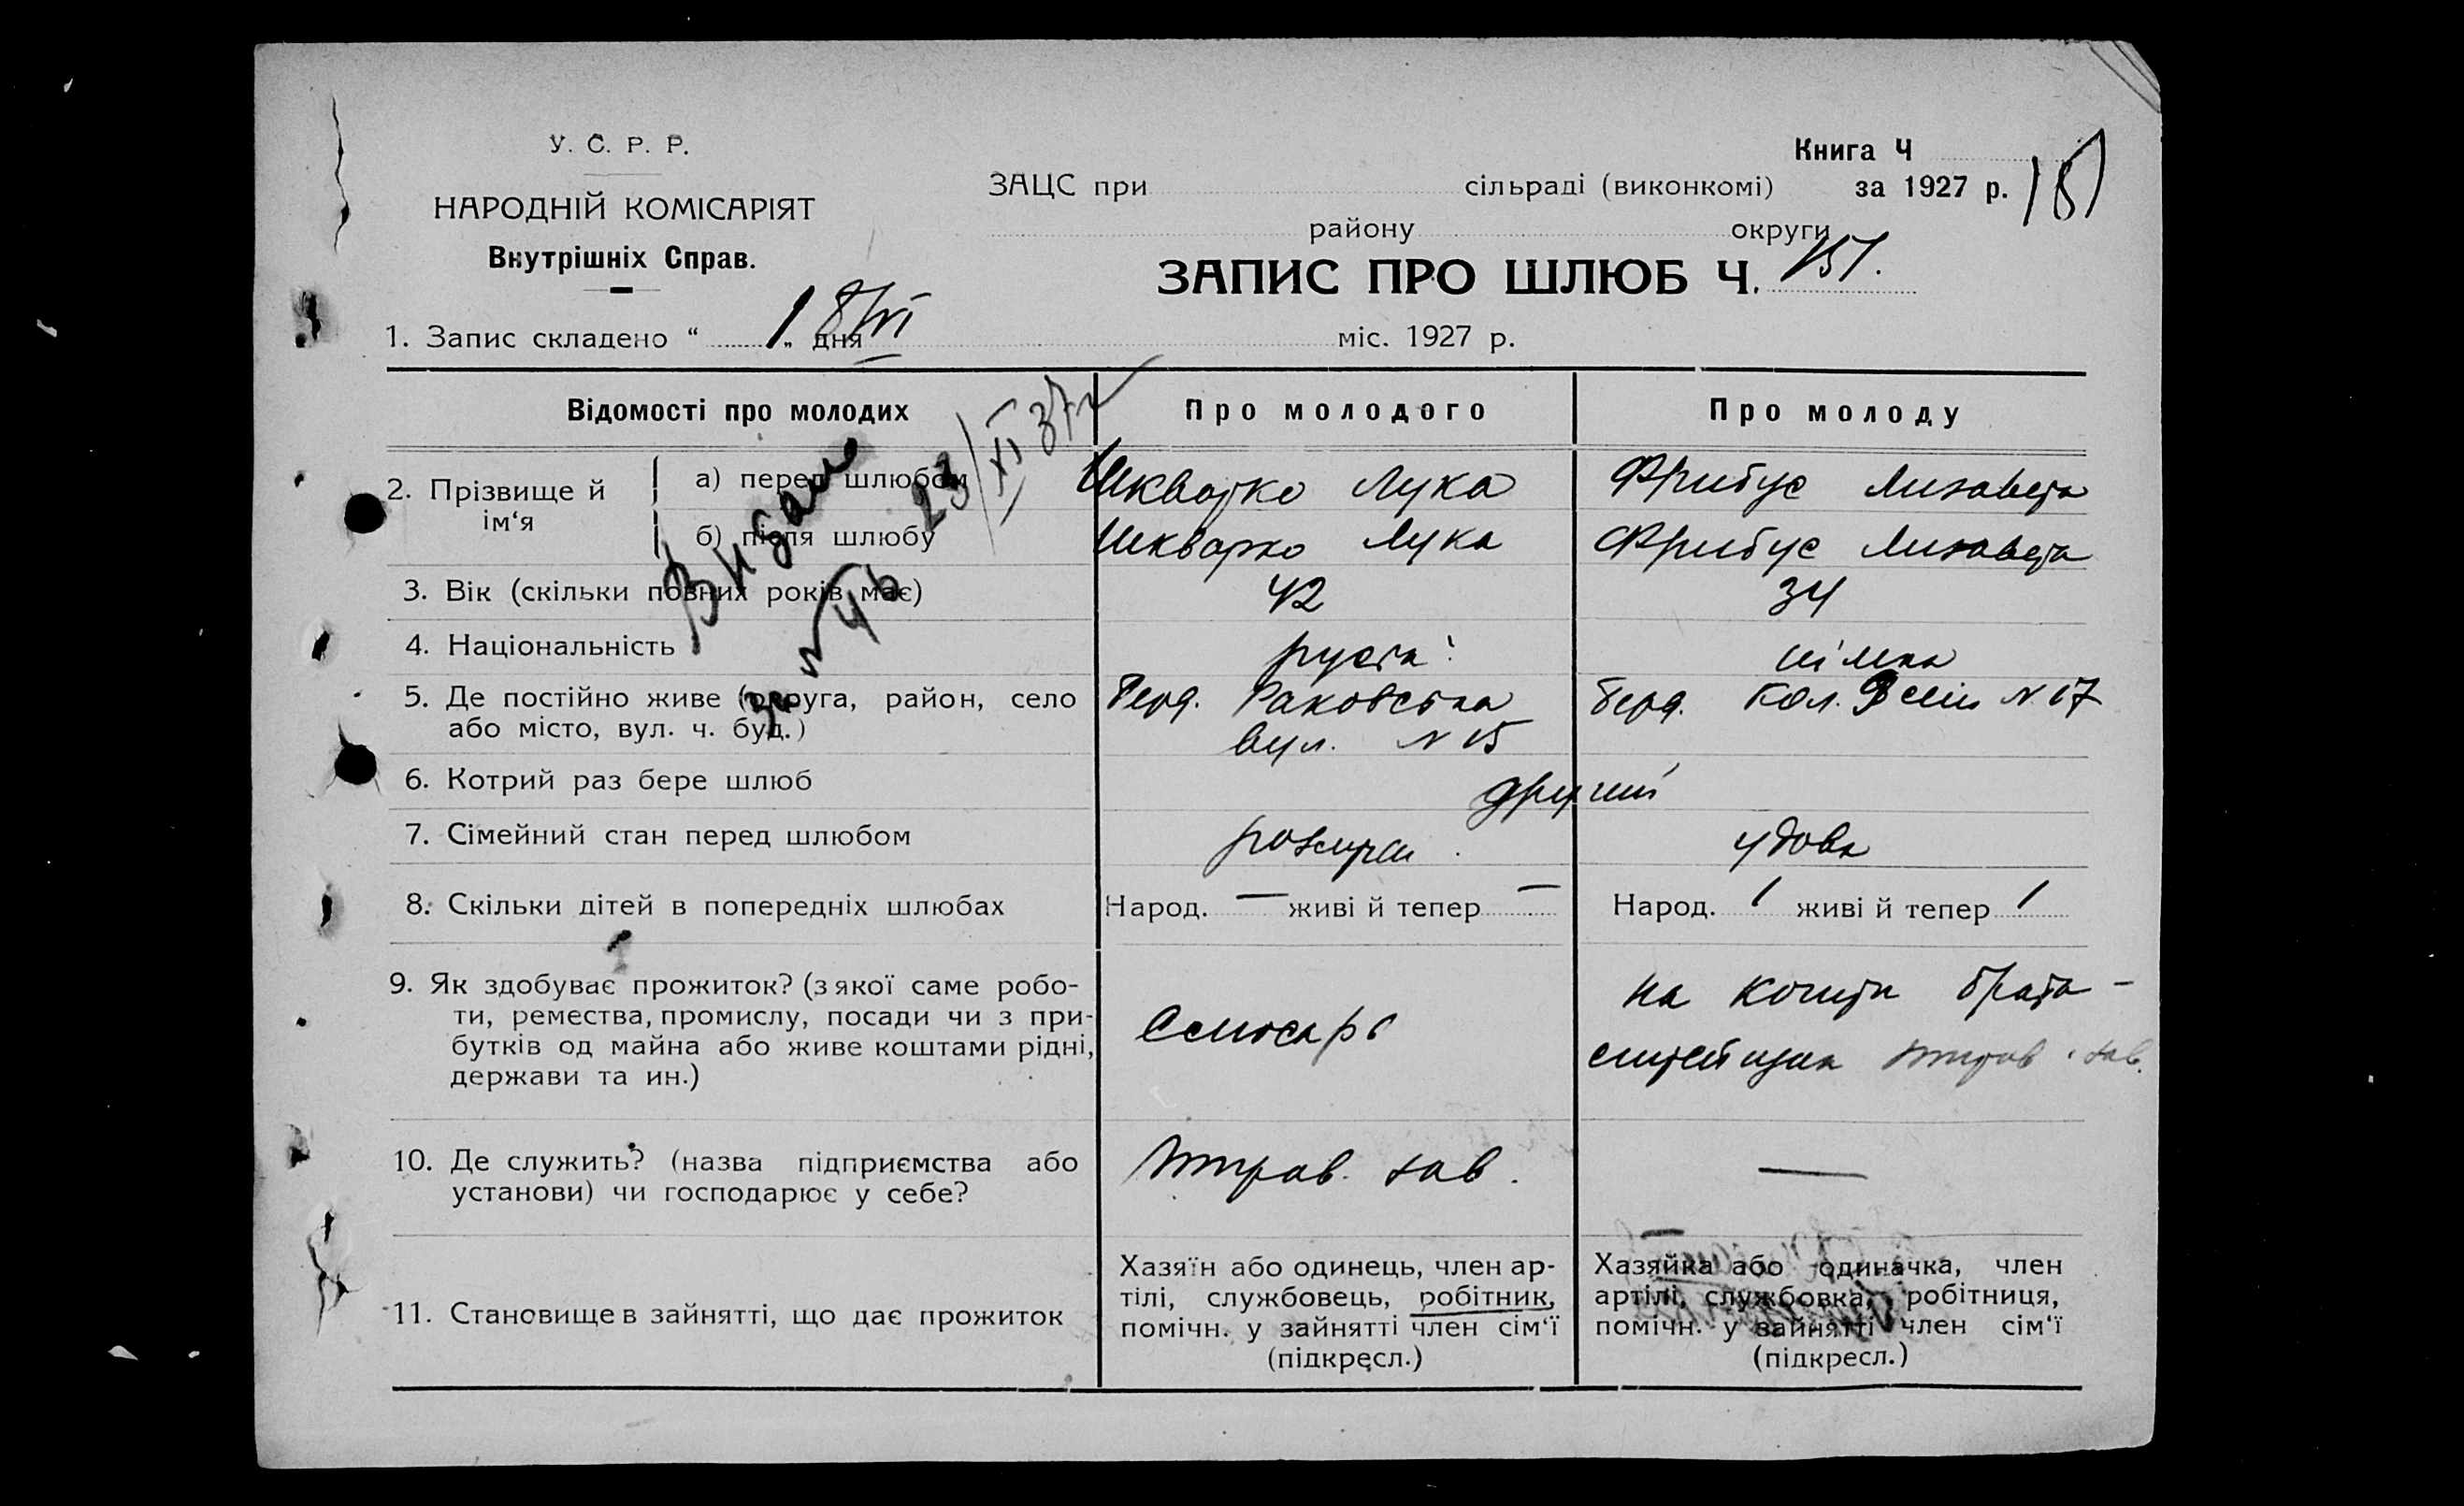 У. С. Р. Р.
НАРОДНІЙ КОМІСАРІЯТ
Внутрішніх Справ.
Книга Ч
ЗАЦС при сільраді (виконкомі) за 1927 р.
району округи
151
ЗАПИС ПРО ШЛЮБ Ч. 151.
1. Запис складено “ 18/VI „ дня міс. 1927 р.
Відомості про молодих Про молодого Про молоду
2. Прізвище й ім‘я
а) перед шлюбом Шкварко Лука Фрибус Лизавета
б) після шлюбу Шкварко Лука Фрибус Лизавета
3. Вік (скільки повних років має) 42 34
4. Національність німка
5. Де постійно живе (округа, район, село Берд. Раковська Берд. Кол. № 17
або місто, вул. ч. буд.) вул. № 15
6. Котрий раз бере шлюб другий
7. Сімейний стан перед шлюбом удова
8. Скільки дітей в попередніх шлюбах Народ. — живі й тепер — Народ. 1 живі й тепер 1
9. Як здобуває прожиток? (з якої саме робо-
ти, ремества, промислу, посади чи з при-
бутків од майна або живе коштами рідні,
держави та ин.)
Слюсарь
на кошти брата -
10. Де служить? (назва підприємства або
установи) чи господарює у себе?
зав. —
11. Становище в зайнятті, що дає прожиток
Хазяїн або одинець, член ар-
тілі, службовець, робітник,
помічн. у зайнятті член сім‘ї
(підкресл.)
Хазяйка або одиначка, член
артілі, службовка, робітниця,
помічн. у зайнятті член сім‘ї
(підкресл.)
Видане
23/XI 37 г
за №